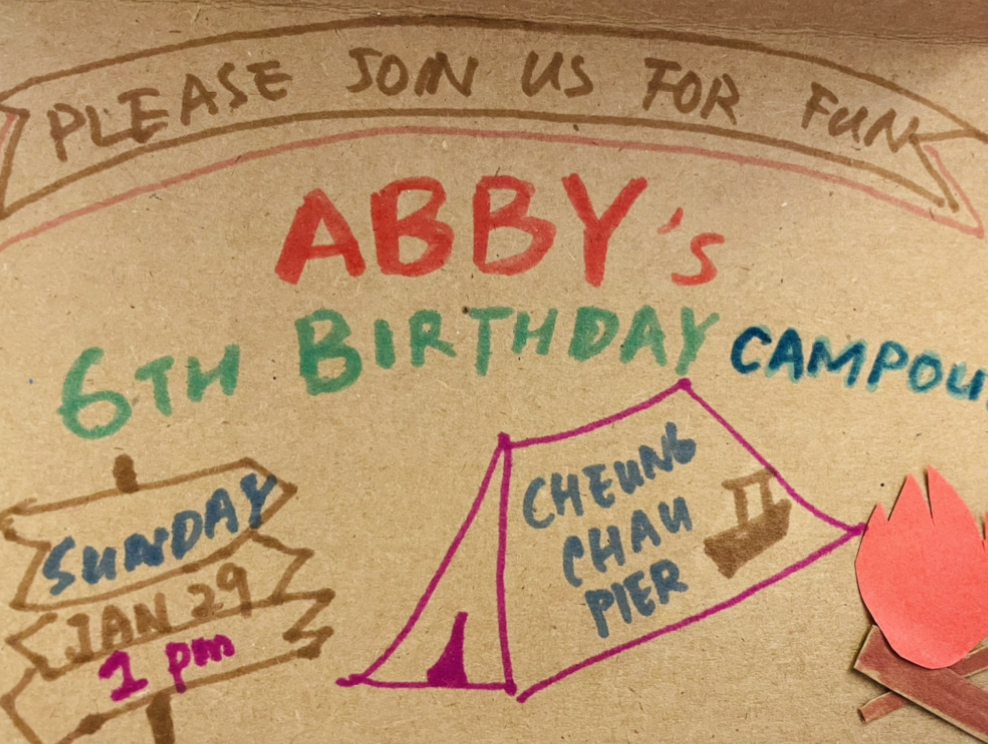 PLEASE JOIN US FOR FUN
ABBY's
6TH BIRTHDAY CAMPOU
SUNDAY
JAN 29
1 pm
CHEUNG
CHAU
PIER